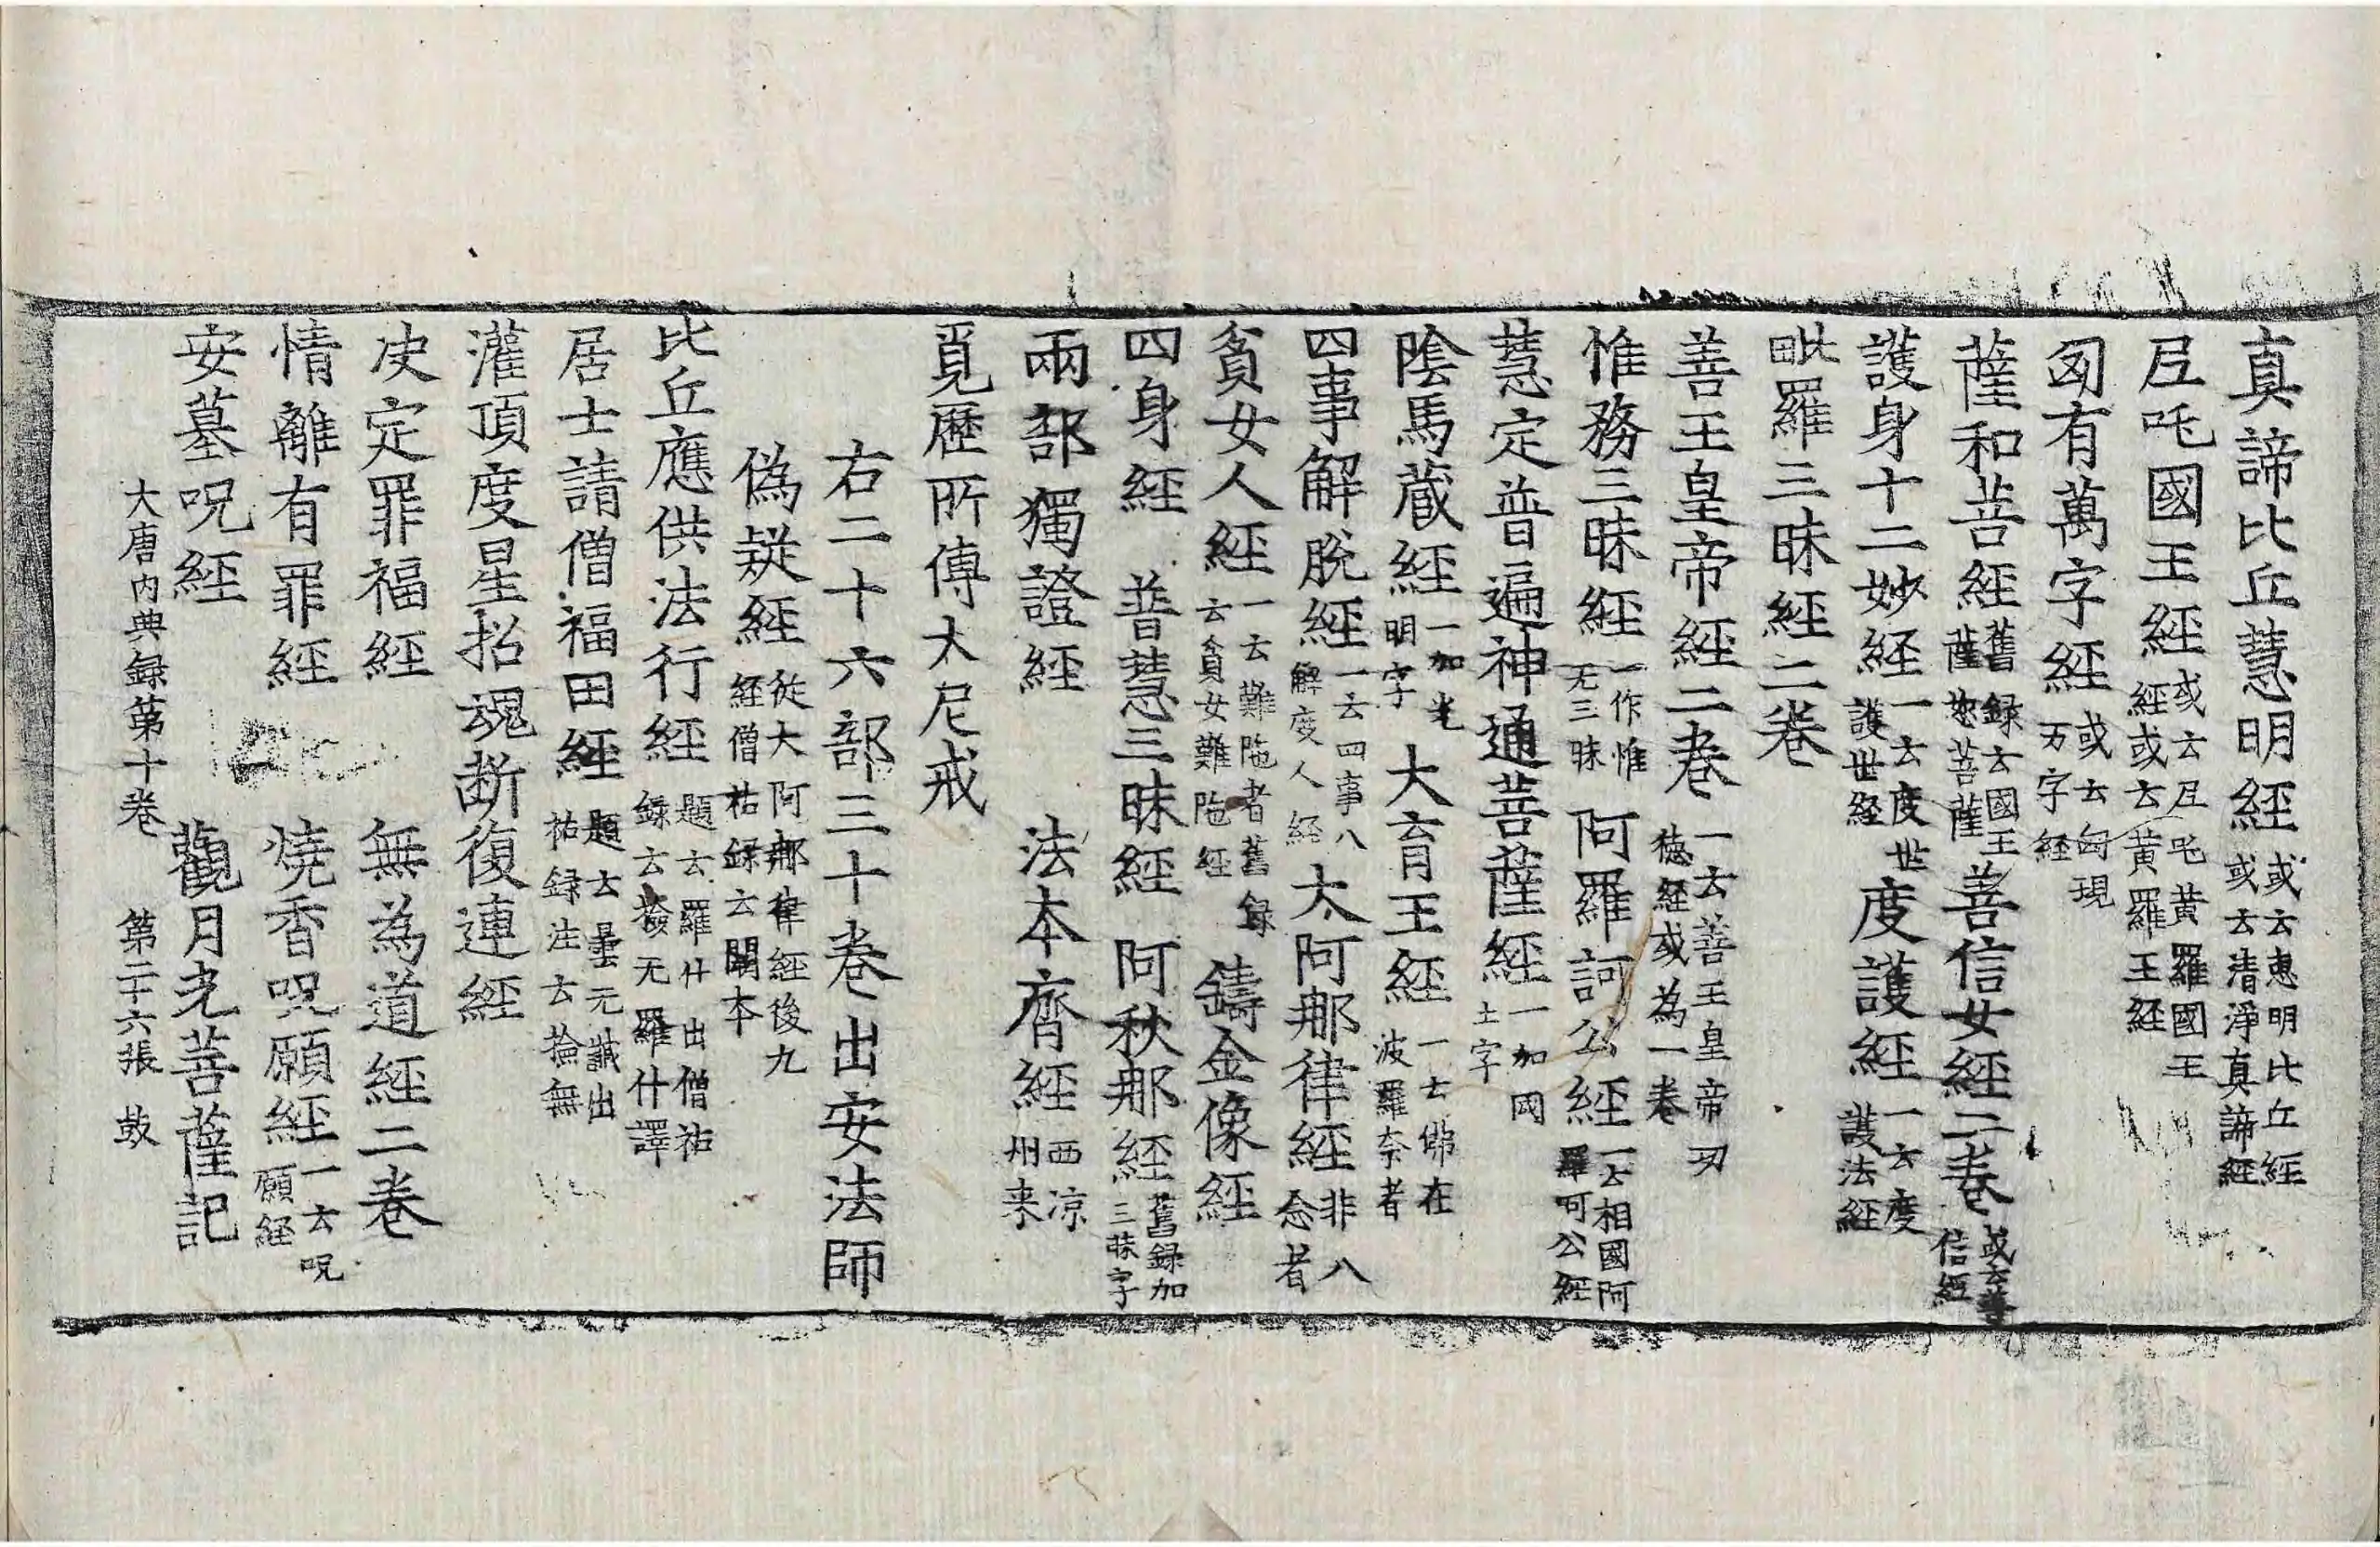 真諦比丘慧明經或云惠明比丘經或云清淨真諦經
𡰱吒國王經或云𡰱吒黃羅國王經或云黃羅王經
匈有萬字經或云匈現万字經
薩和菩經舊録云國王薩惒菩薩善信女經二卷或云善信經
護身十二妙經一云度世護世經度護經一云度護法經
毗羅三昧經二卷
善王皇帝經二卷一云善王皇帝功德經或為一卷
惟務三昧經一作惟无三昧阿羅訶公經一云相國阿羅呵公經
慧定普遍神通菩薩經一加國土字
陰馬蔵經一加光明字大育王經一云佛在波羅奈者
四事解脫經一云四事解度人經大阿那律經非八念者
貧女人經一云難陁者舊録云貧女難陁經鑄金像經
四身經 普慧三昧經 阿秋那經舊録加三菻字
兩部獨證經 法本齊經西涼州来
覓歷所傳大尼戒
右二十六部三十卷出安法師
偽疑經從大阿那律經後九經僧祐録云闕本
比丘應供法行經題云羅什出僧祐録云撿无羅什譯
居士請僧福田經題云曇无讖出祐録注云撿無
灌頂度星招魂断復連經
决定罪福經 無為道經二卷
情離有罪經 燒香呪願經一云呪願經
安墓呪經 觀月光菩薩記
大唐内典録第十卷 第二十六張 鼓